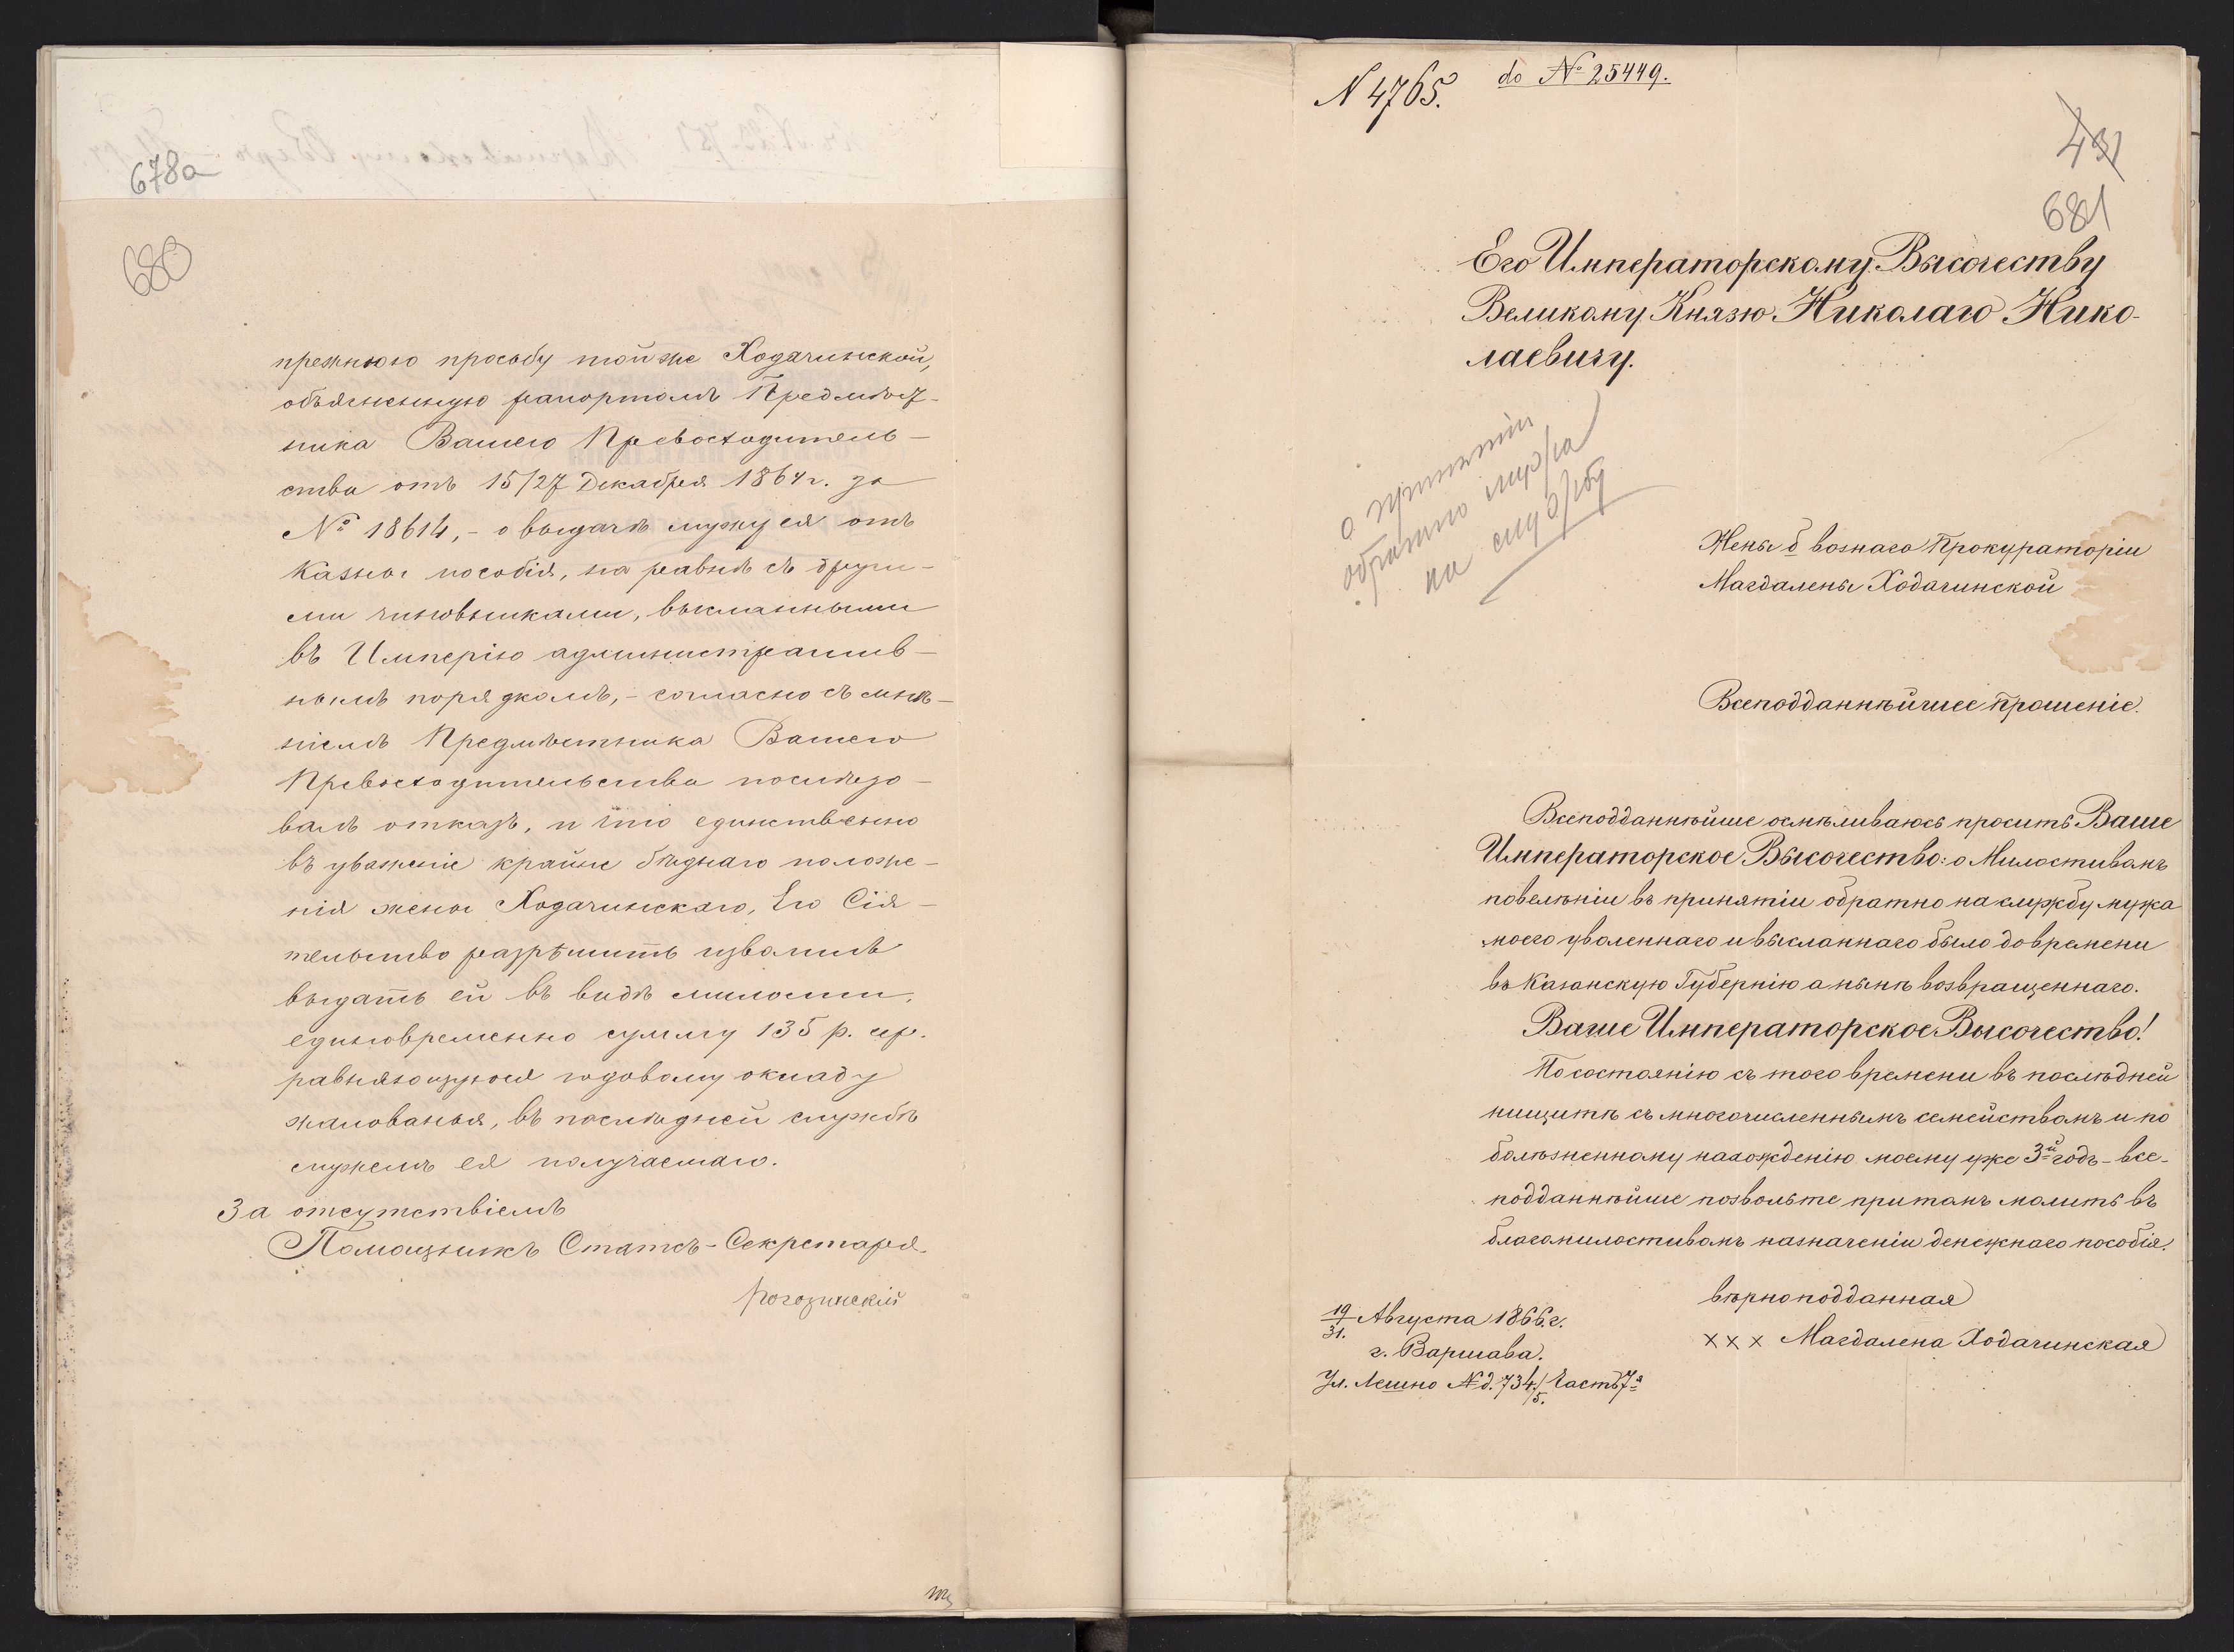 678а
680
прежнюю просьбу той же Ходачинской,
объясненную рапортомъ Предмѣст-
ника Вашего Превосходитель-
ства отъ 15/27 Декабря 1864 г. за
№ 18614, - о выдачѣ мужу ея отъ
Казны пособія, на равнѣ съ други-
ми чиновниками, высланными
въ Имперію административ-
нымъ порядкомъ, - согласно съ мнѣ-
ніемъ Предмѣстника Вашего
Превосходительства послѣдо-
валъ отказъ, и что единственно
въ уваженіе крайне бѣднаго положе-
нія жены Ходачинскаго, Его Сія-
тельство разрѣшить изволилъ
выдать ей въ видѣ милости,
единовременно сумму 135 р. сер.
равняющуюся годовому окладу
жалованья, въ послѣдней службѣ
мужемъ ея получаемаго.
За отсутствіемъ
Помощникъ Статсъ-Секретаря
Рогозинскій
N 4765.
do № 25449.
431
681
Его Императорскому Высочеству
Великому Князю Николаю Нико-
лаевичу.
о принятіи
обратно мужа
на службу
Жены б возного Прокураторіи
Магдалены Ходачинской
Всеподданнѣйшее прошеніе.
Всеподданнѣйше осмѣливаюсь просить Ваше
Императорское Высочество: о Милостивомъ
повелѣніи въ принятіи обратно на службу мужа
моего уволеннаго и высланнаго было до времени
въ Казанскую Губернію а нынѣ возвращеннаго.
Ваше Императорское Высочество!
По состоянію съ того времени въ послѣдней
нищитѣ съ многочисленнымъ семействомъ и по
болѣзненному нахожденію моему уже 3й годъ - все-
подданнѣйше позвольте притомъ молить въ
благомилостивомъ назначеніи денежнаго пособія.
вѣрноподданная
××× Магдалена Ходачинская
19/31. Августа 1866 г.
г. Варшава.
Ул. Лешно № д. 734/5. Часть 7я